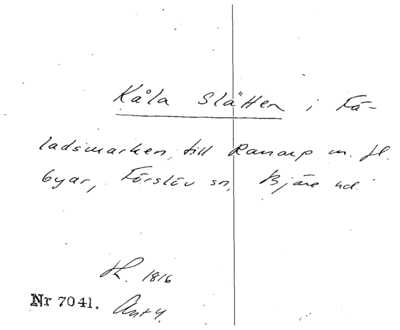 Kåla Slätten i Fä-
ladsmarken, till Ranarp m. fl.
byar, Förslöv sn, Bjäre hd.
H. 1816
Nr 7041. Ant 4.